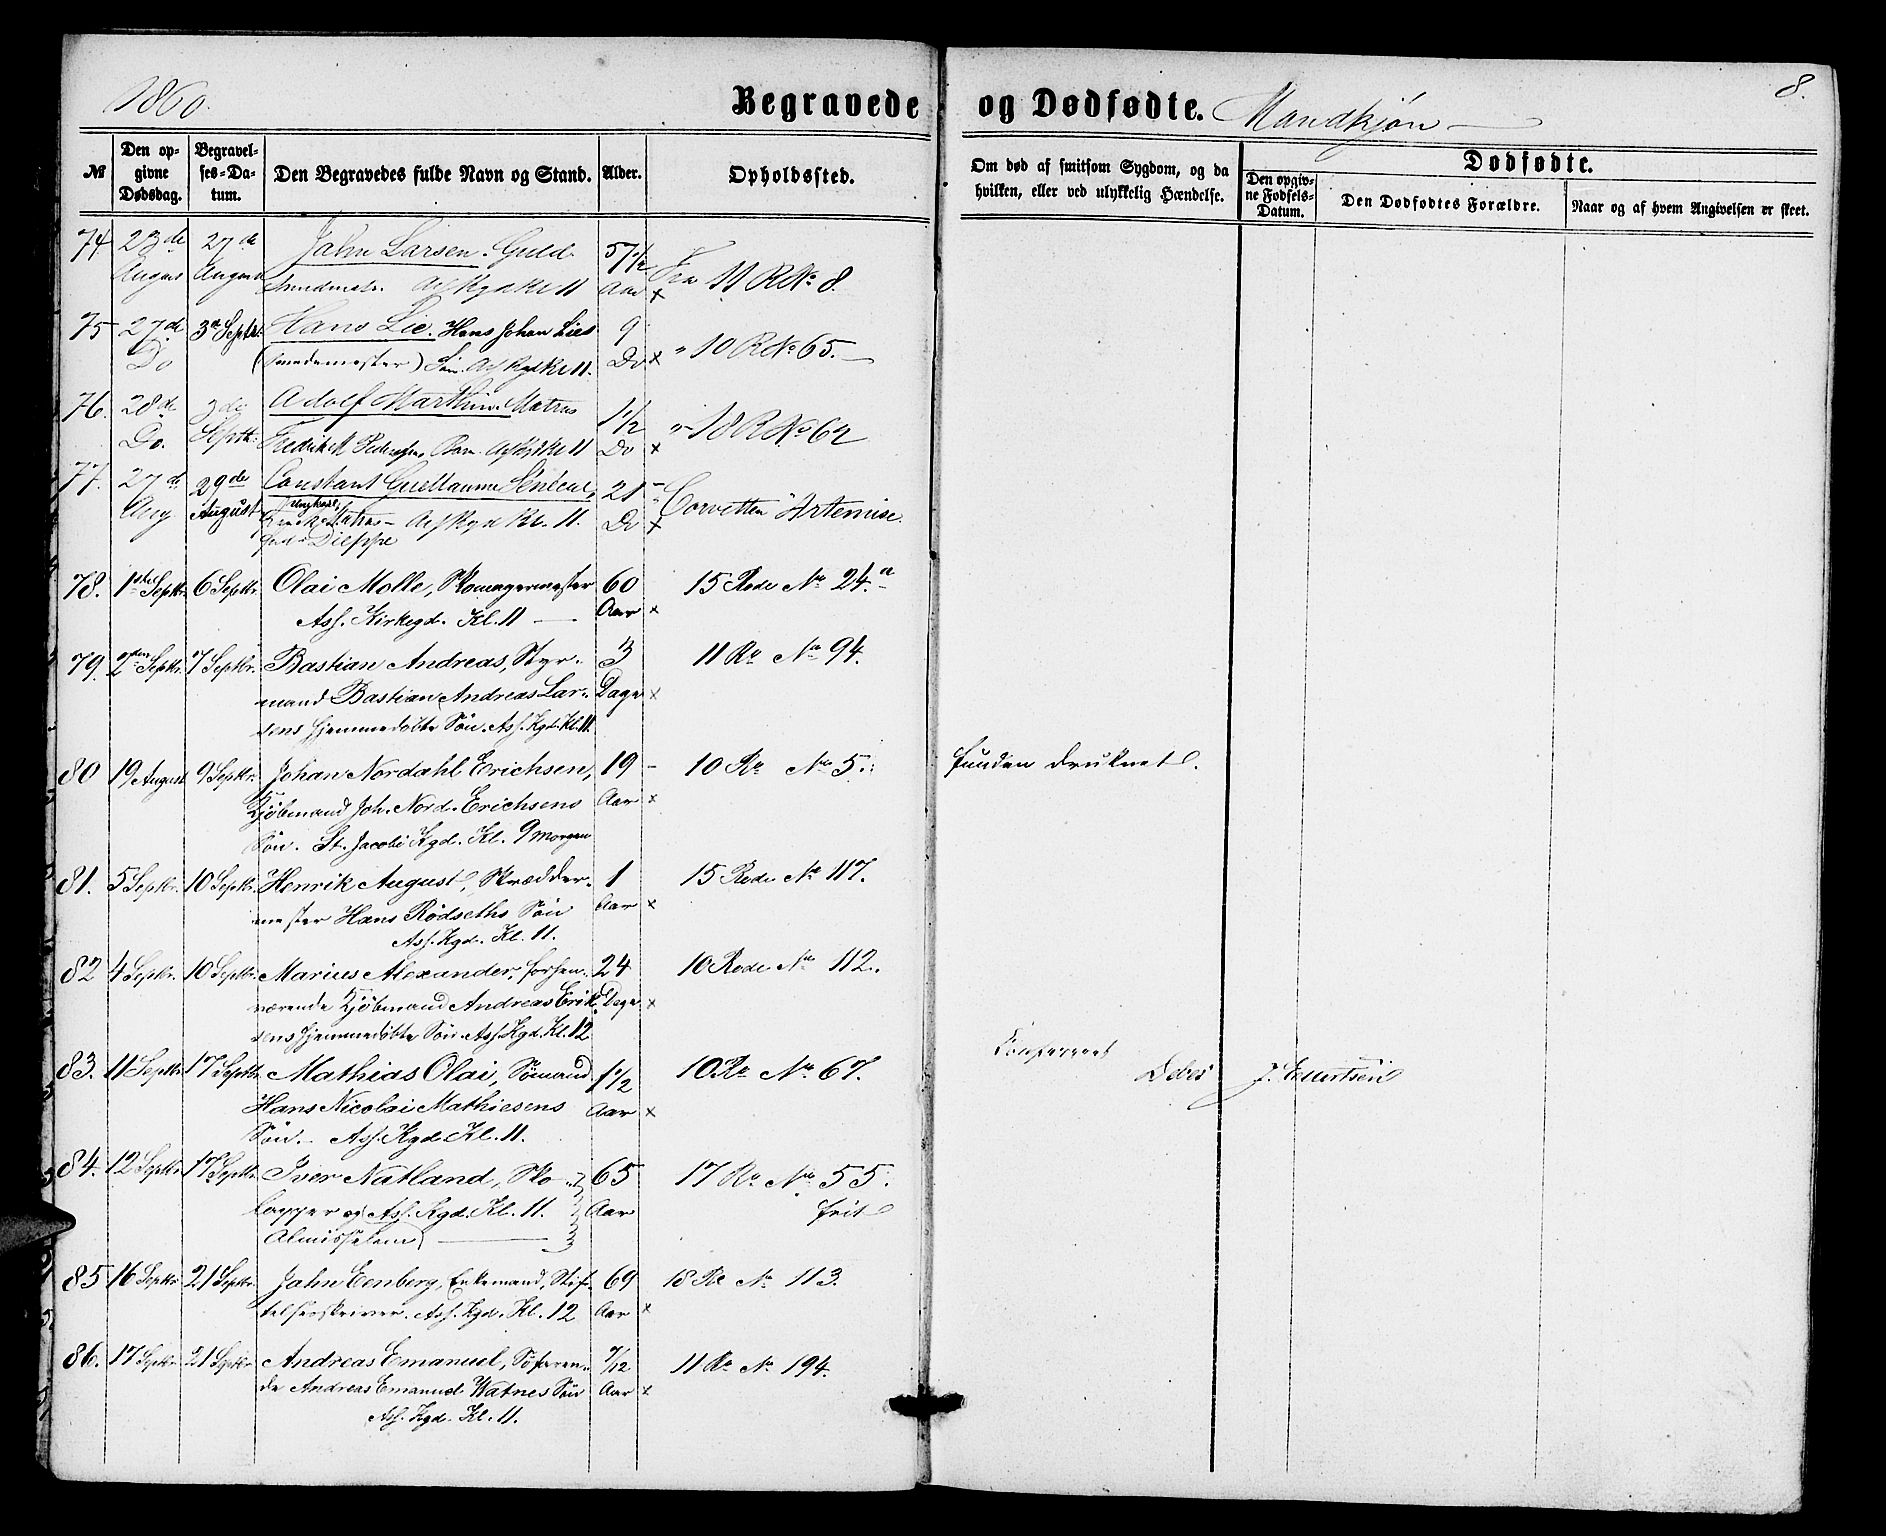 1860.
Begravede og Dødfødte. Mandkjøn
8.
№
Den opgivne Dødsdag.
Begravelses-Datum.
Den Begravedes fulde Navn og Stand.
Alder.
Opholdssted.
Om død af smitsom Sygdom, og da hvilken, eller ved ulykkelig Hændelse.
Dødfødte.
Den opgivne Fødsels-Datum.
Den Dødfødtes Forældre.
Naar og af hvem Angivelsen er skeet.
74 23de 27de Jahn Larsen. Guld 57 1/2
August August Ass Kgd Kl 11 Aar x 11 R No 8.
75 27de 3de Septbr. Hans Lie. Hans Johan Lies 9
Do (smedemester) Søn. Ass Kgd Kl 11. Do x " 10 R No 65.
76. 28de 3de Adolf Marthin. Matros 1 1/2
Do. Septb: Fredrik M Pedersens Barn. Ass Kgd Kl 11 Do x " 18 R No 62
77. 27de 29de Constant Guillaume Sénécal, 21
Aug August Ungkarl, Ass Kgd Kl. 11. Do x Corvetten "Artemise.
Dieppe
78. 1ste Septbr. 6 Septbr. Olai Molle, Skomagermester 60 15 Rode No 24.a
Ass. Kirkegd. Kl. 11 Aar x
79. 2den Septbr. 7 Septbr. Bastian Andreas, Styr- 3 11 Ro No 94.
mand Bastian Andreas Lar- Dage x
sens hjemmedøbte Søn. Ass. Kgd. Kl. 11.
80 19 August 9 Septbr. Johan Nordahl Erichsen, 19 10 Ro No 5. funden druknet.
Kjøbmand Joh. Nord. Erichsens Aar x
Søn. St. Jacobi Kgd. Kl. 9 Morgen
81. 5 Septbr. 10 Septbr. Henrik August, Skrædder- 1 15 Rode No 117.
mester Hans Rödseths Søn Aar x
Ass. Kgd. Kl. 11.
82 4 Septbr. 10 Septbr. Marius Alexander, forhen- 24 10 Rode No 112.
værende Kjøbmand Andreas Erik- Dage x
sens hjemmedøbte Søn. Ass. Kgd. Kl. 12
83. 11 Septbr. 17 Septbr. Mathias Olai, Sømand 1 1/2 10 Ro No 67. Confereret
Debes J. Ellertsen
Hans Nicolai Mathiesens Aar x
Søn. Ass. Kgd. Kl. 11.
84. 12 Septbr. 17 Septbr. Iver Natland, Sko- 65 17 Ro No 55.
lapper og Ass. Kgd. Kl. 11. Aar frit
Almisselem
85 16 Septbr. 21 Septbr. Jahn Eenberg, Enkemand, Stif- 69 18 Ro No 113.
telsesskriver. Ass. Kgd. Kl. 12 Aar x
86. 17 Septbr. 21 Septbr. Andreas Emanuel, Søfaren- 7/12 11 Ro No 194.
de Andreas Emanuel Watnes Søn Aar x
Ass. Kgd. Kl. 11.